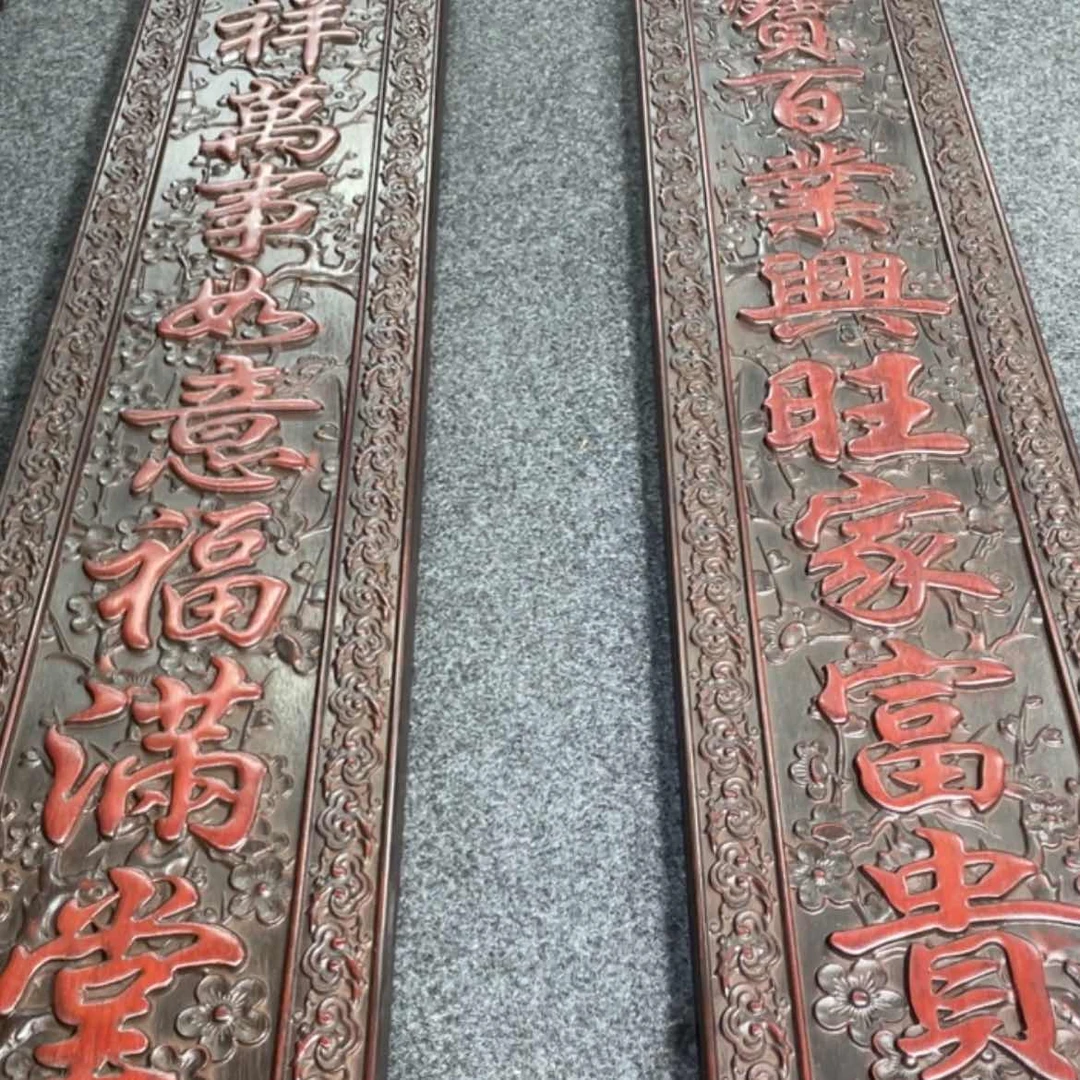 寶百業興旺家富貴
祥萬事如意福滿堂